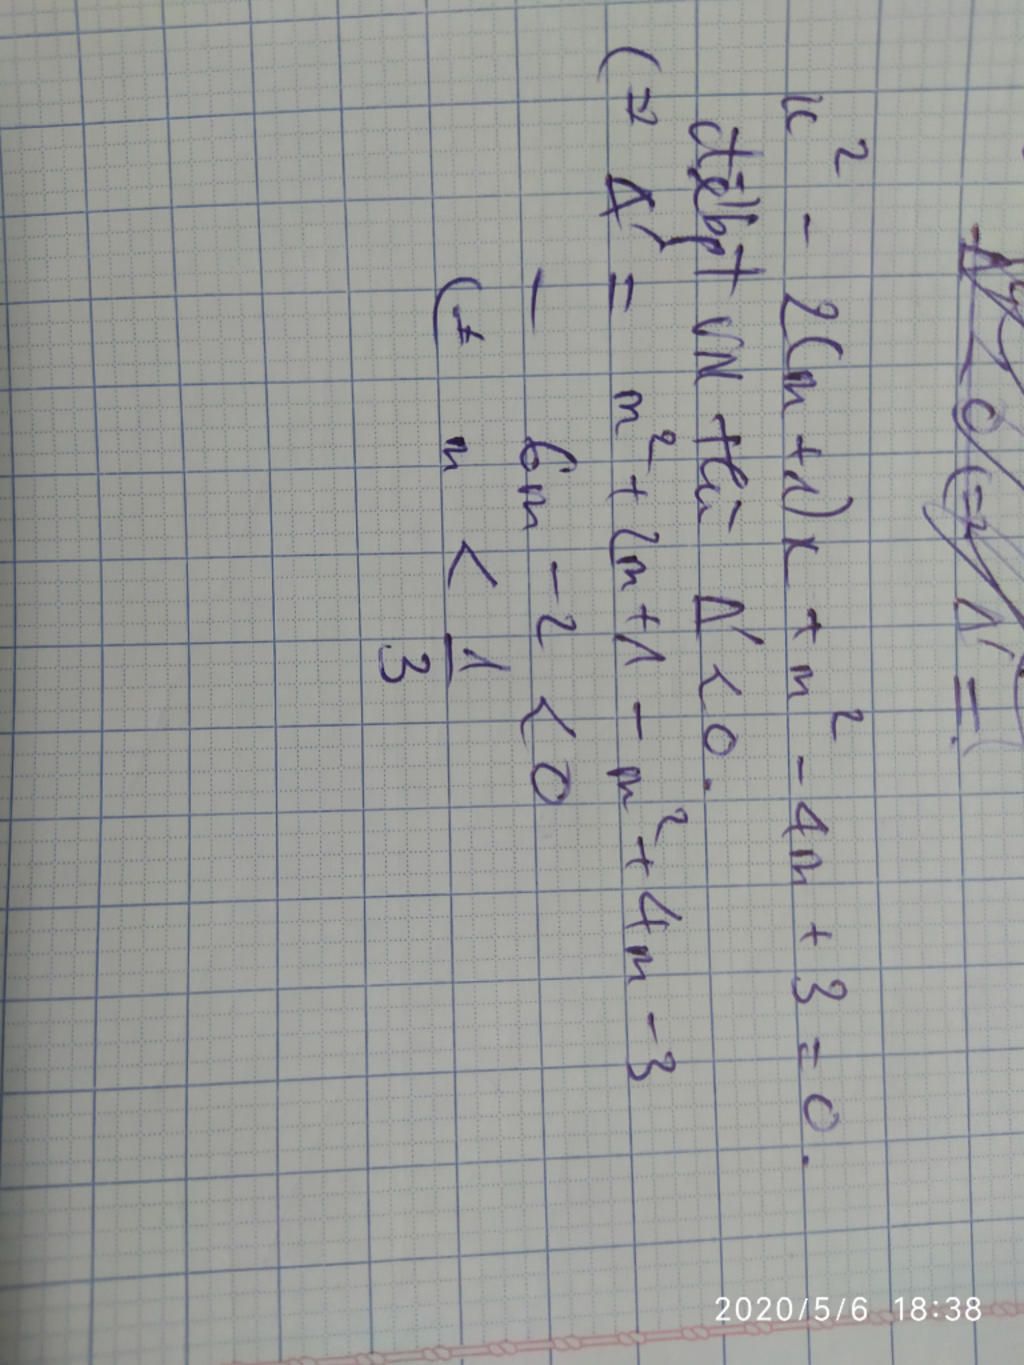 Δ' < 0 (=> Δ' =
x² - 2(m+1)x + m² - 4m + 3 = 0.
để pt VN thì Δ' < 0.
(=> Δ' = m² + 2m + 1 - m² + 4m - 3
- 6m - 2 < 0
(= m < 1/3
2020/5/6 18:38